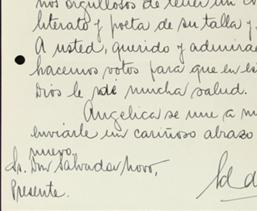 nos orgullosos de tener un
literato y poeta de su talla y
A usted, querido y admira
hacemos votos para que en
Dios le dé mucha salud.
Angelica se une a m
enviarle un cariñoso abrazo
nuevo.
Sr. Don Salvador Novo,
Presente.